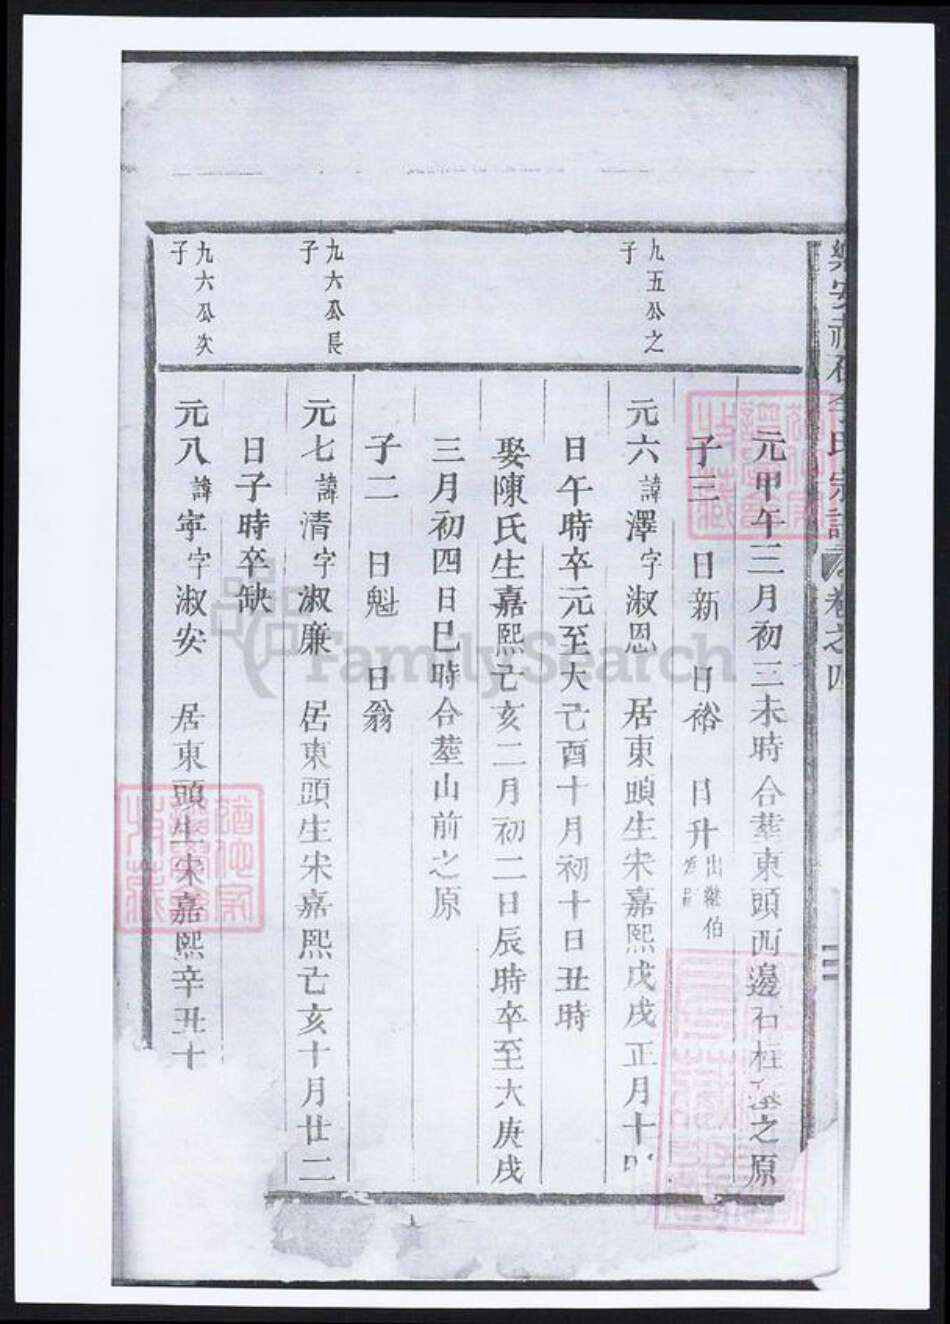 元甲午三月初三未時合塟東頭西邊石柱之原
子三 日新 日裕 日升出繼伯
九五公之子
元六諱澤字淑恩 居東頭生宋嘉熙戊戌正月十
日午時卒元至大己酉十月初十日丑時
娶陳氏生嘉熙己亥二月初二日辰時卒至大庚戌
三月初四日巳時合塟山前之原
子二 日魁 日翁
九六公長子
元七諱清字淑廉 居東頭生宋嘉熙己亥十月廿二
日子時卒缺
九六公次子
元八諱寧字淑安 居東頭生宋嘉熙辛丑十
FamilySearch